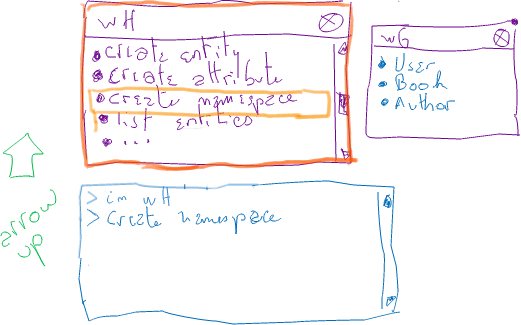 WH
Create entity
Create attribute
Create namespace
list entities
...
WG
User
Book
Author
arrow
up
> im WH
> Create namespace